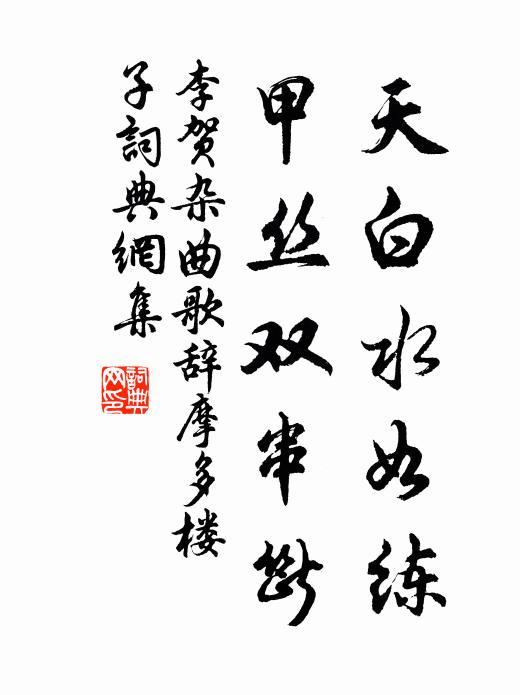 天白水如练
甲丝双串断
李贺杂曲歌辞摩多楼
子詞典網集
詞典
网印